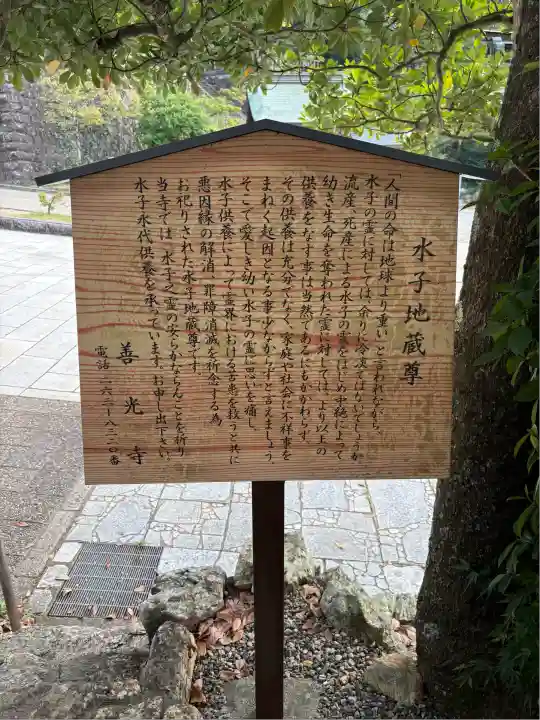 水子地蔵尊
「人間の命は地球より重い」と言われながら、
水子の霊に対しては、余りに冷淡ではないでしょうか
流産、死産による水子の霊をはじめ中絶によって
幼き生命を奪われた霊に対しては、より以上の
供養をなす事は当然であるにもかかわらず、
その供養は充分でなく、家庭や社会に不祥事を
まねく起因となる事少なからずと言えましょう。
そこで愛しき幼い水子の霊に思いを痛し、
水子供養によって霊界における苦患を救うと共に
悪因縁の解消、罪障消滅を祈念する為
お祀りされた水子地蔵尊です。
当寺では、水子之霊の安らかならんことを祈り
水子永代供養を承っています。お申し出下さい。
善光寺
電話二六二-八三二〇番